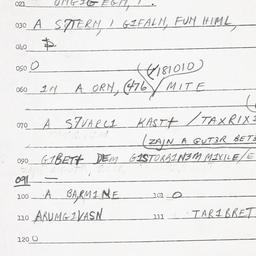 030 A S7TERM, I GIFALN, FUM HIML,
040
050 O (4181010)
060 IM A ORN, (476) MITE
070 A S7VARLI KAST+ / TAXRIX
(ZAJN A GUT3R BET
090 GIBETT DEM G1STORBIN3M MIXILE/E
091 —
100 A BARMINE 101 O
110 ARUMGIVASN 111 TARIBRET
120 O